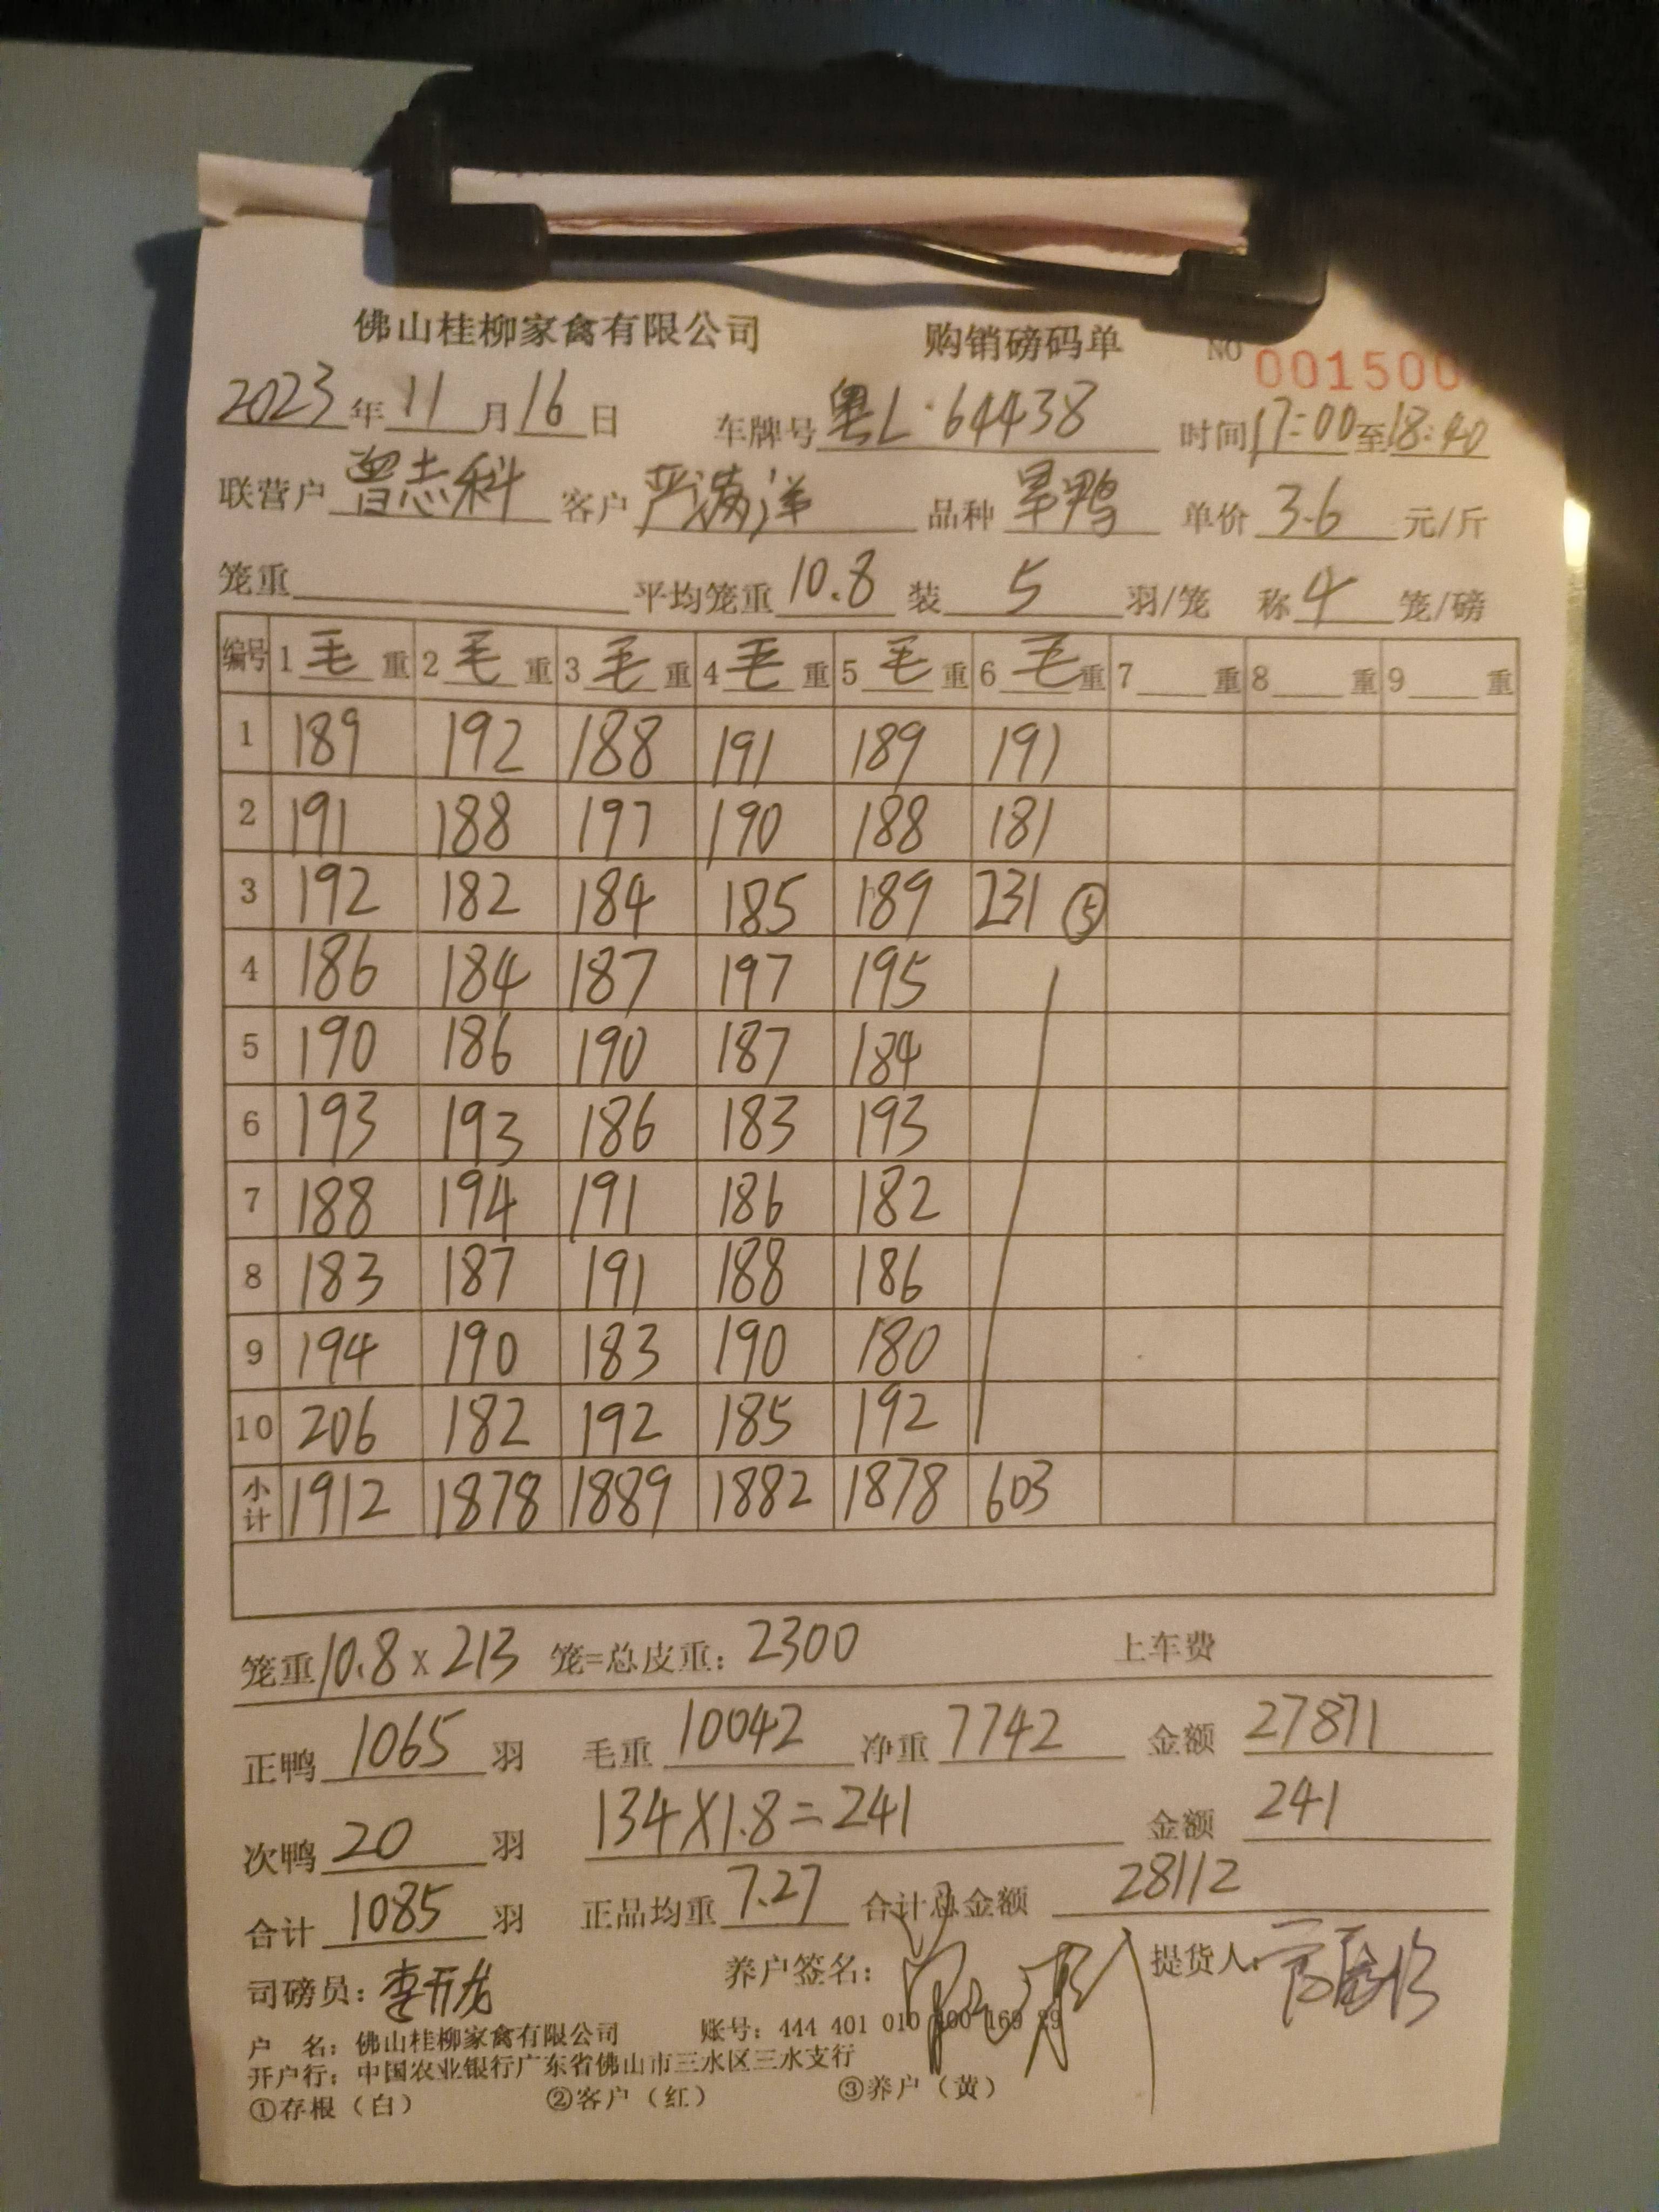 佛山桂柳家禽有限公司 购销磅码单 NO 001500
2023年11月16日 车牌号粤L·64438 时间17:00至18:40
联营户曾志科 客户严满洋 品种旱鸭 单价3.6元/斤
笼重 平均笼重10.8 装5羽/笼 称4笼/磅
编号 1毛重 2毛重 3毛重 4毛重 5毛重 6毛重 7重 8重 9重
1 189 192 188 191 189 191
2 191 188 197 190 188 181
3 192 182 184 185 189 231 ⑤
4 186 184 187 197 195
5 190 186 190 187 184
6 193 193 186 183 193
7 188 194 191 186 182
8 183 187 191 188 186
9 194 190 183 190 180
10 206 182 192 185 192
小计 1912 1878 1889 1882 1878 603
笼重10.8×213 笼=总皮重：2300 上车费
正鸭1065羽 毛重10042 净重7742 金额27871
次鸭20羽 134×1.8=241 金额241
合计1085羽 正品均重7.27 合计总金额28112
司磅员：李开龙 养户签名： 提货人：
户 名：佛山桂柳家禽有限公司 账号：444 401 010 400 169 29
开户行：中国农业银行广东省佛山市三水区三水支行
①存根（白） ②客户（红） ③养户（黄）